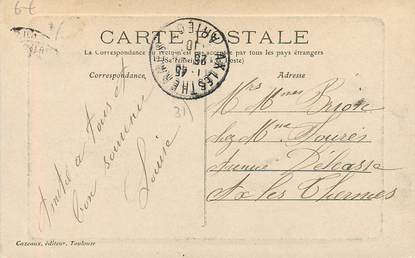 6-E
CARTE POSTALE
La Correspondance au recto n'est pas acceptée par tous les pays étrangers
Correspondance
Adresse
AX LES THERMES
ARIEGE
1 45
26
10
31
Amitié à tous et
bon souvenir
Louise
Mrs Mmes
chez Mme Soures
Avenue Delcassé
Ax les Thermes
Cazeaux, éditeur, Toulouse